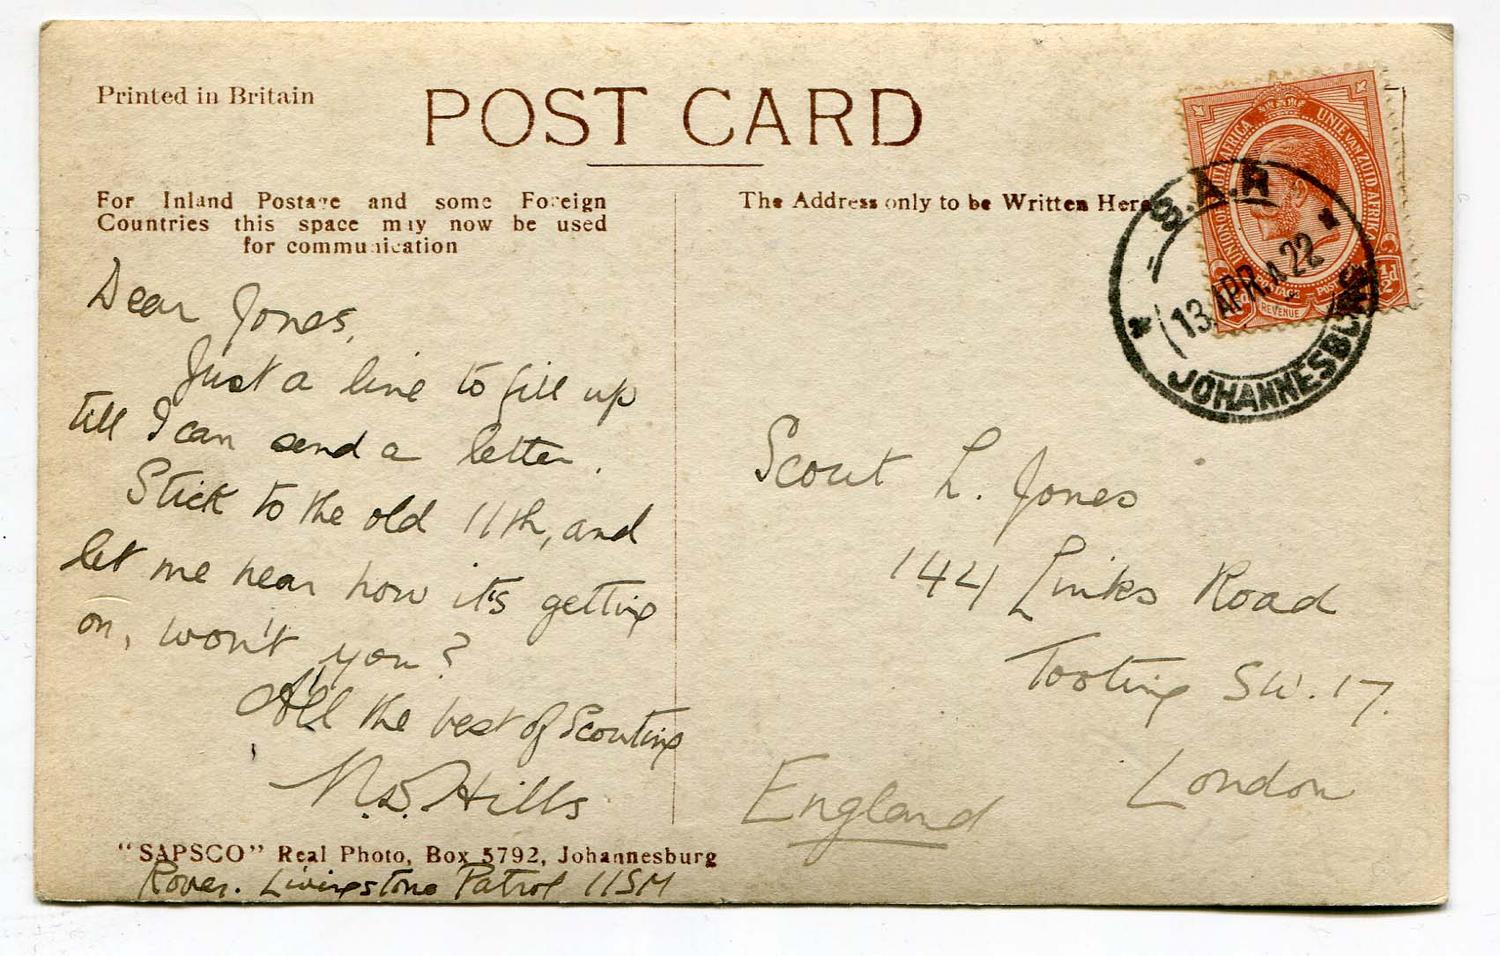 Printed in Britain
POST CARD
For Inland Postage and some Foreign
Countries this space may now be used
for communication
The Address only to be Written Here
Dear Jones,
Just a line to fill up
till I can send a letter.
Stick to the old 11th, and
let me hear how it's getting
on, won't you?
All the best of Scouting
N.D. Hills
"SAPSCO" Real Photo, Box 5792, Johannesburg
Rover. Livingstone Patrol 11SM
UNION OF SOUTH AFRICA
UNIE VAN ZUID AFRIKA
POSTAGE POSTZEGEL
REVENUE
½d
S.A.R
13 APR.A 22
JOHANNESBURG
Scout L. Jones
144 Links Road
Tooting S.W. 17.
London
England